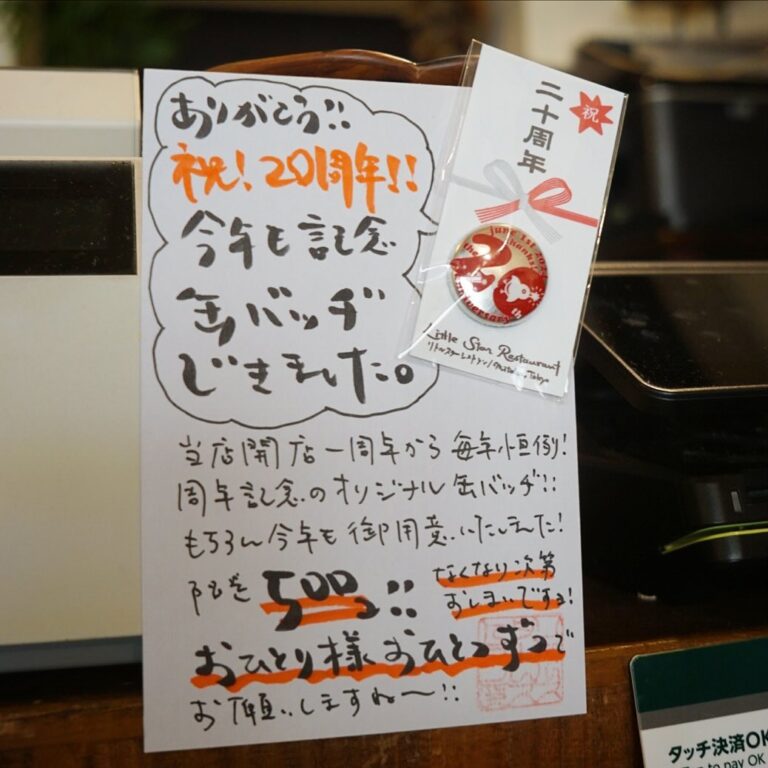 ありがとう!!
祝!20周年!!
今年も記念
缶バッヂ
できました。
当店開店一周年から毎年恒例!
周年記念のオリジナル缶バッヂ!!
もちろん今年も御用意いたしました!
限定500コ!!
なくなり次第
おしまいですョ!
おひとり様おひとつずつで
お願いしますねー!!
祝
二十周年
june 1st 20
thanks!
the
20
th
anniversary
Little Star Restaurant
リトルスターレストラン/Mitaka, Tokyo
タッチ決済OK
to pay OK